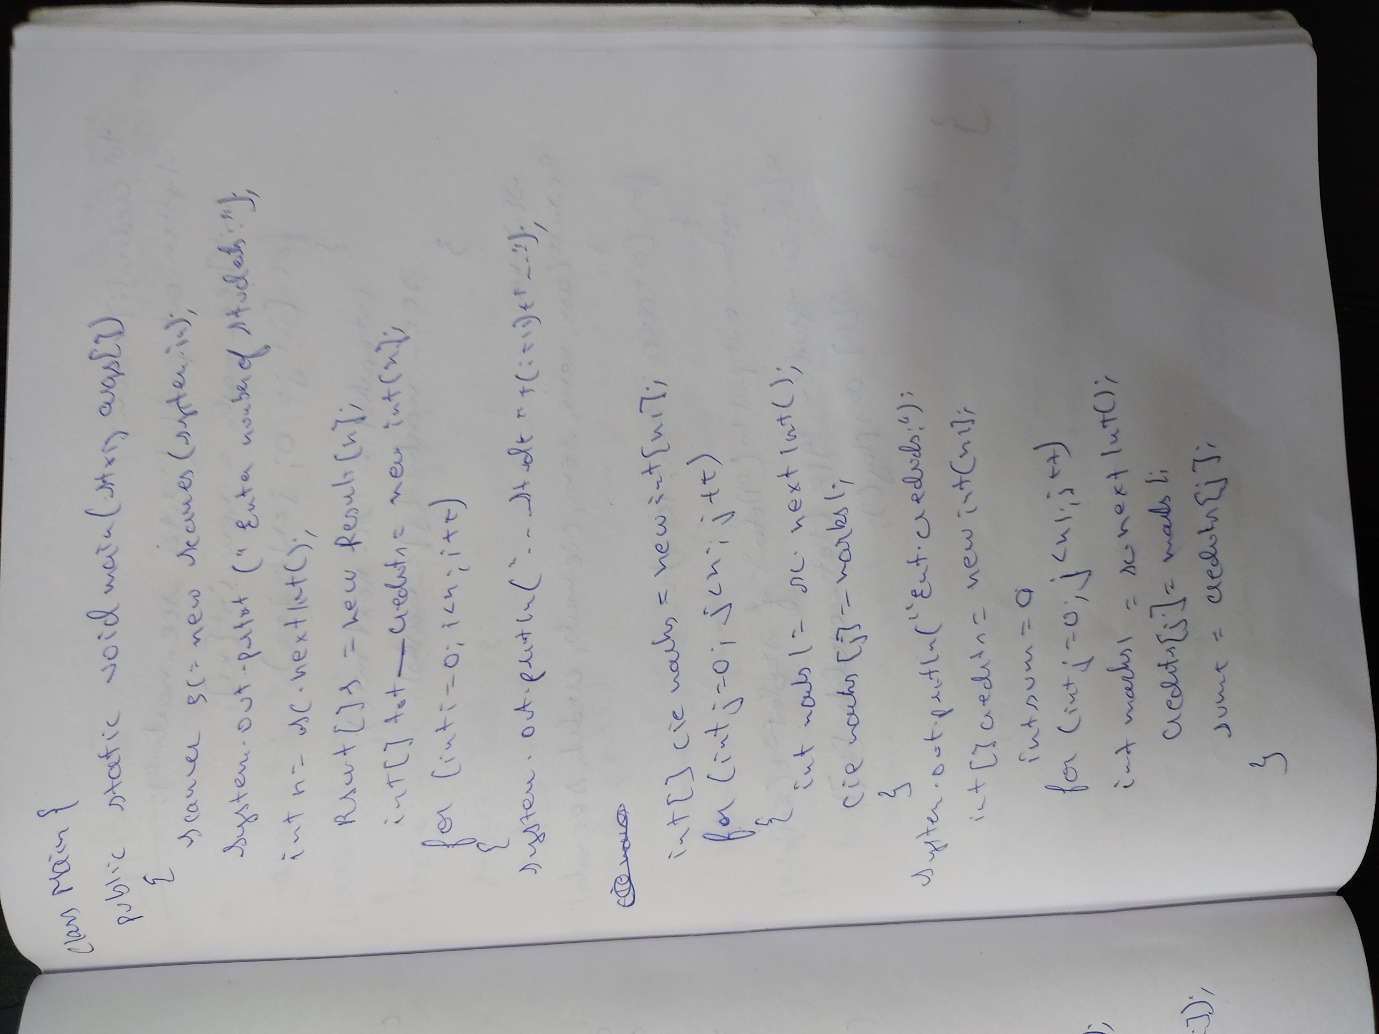 class Main {
public static void main(String args[])
{
Scanner sc = new Scanner(System.in);
System.out.println("Enter number of students:");
int n = sc.nextInt();
Result[] s = new Result[n];
int[] tot_credits = new int[n];
for (int i=0; i<n; i++)
{
System.out.println("--- Student "+(i+1)+"--");
int[] cie marks = new int[n1];
for (int j=0; j<n; j++)
{
int marks1 = sc.nextInt();
cie marks[j] = marks1;
}
System.out.println("Ent. credits:");
int[] credits = new int[n1];
int sum = 0
for (int j=0; j<n1; j++)
int marks1 = sc.nextInt();
credits[j] = marks1;
sum+ = credits[j];
}
);
i]);